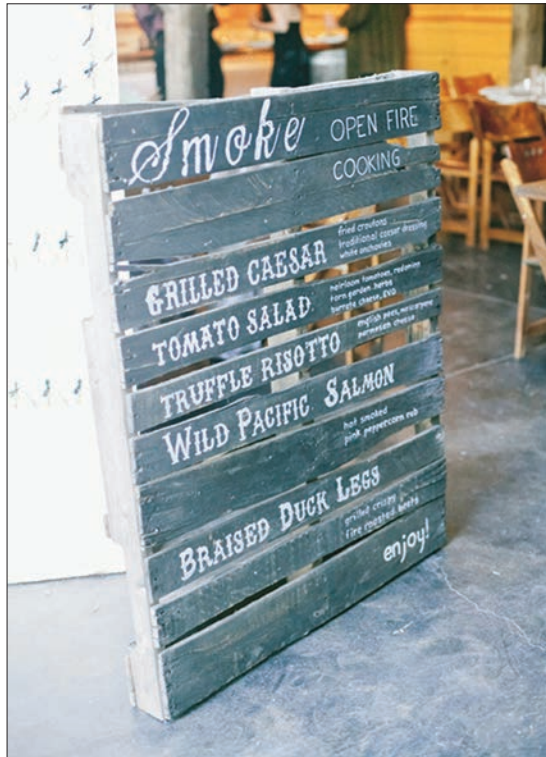 Smoke OPEN FIRE
COOKING
GRILLED CAESAR
fried croutons
traditional caesar dressing
white anchovies
TOMATO SALAD
heirloom tomatoes,
torn garden herbs
burrata cheese, EVO
TRUFFLE RISOTTO
english peas, mascarpone
parmesan cheese
WILD PACIFIC SALMON
hot smoked
pink peppercorn rub
BRAISED DUCK LEGS
grilled crispy
fire roasted beets
enjoy!